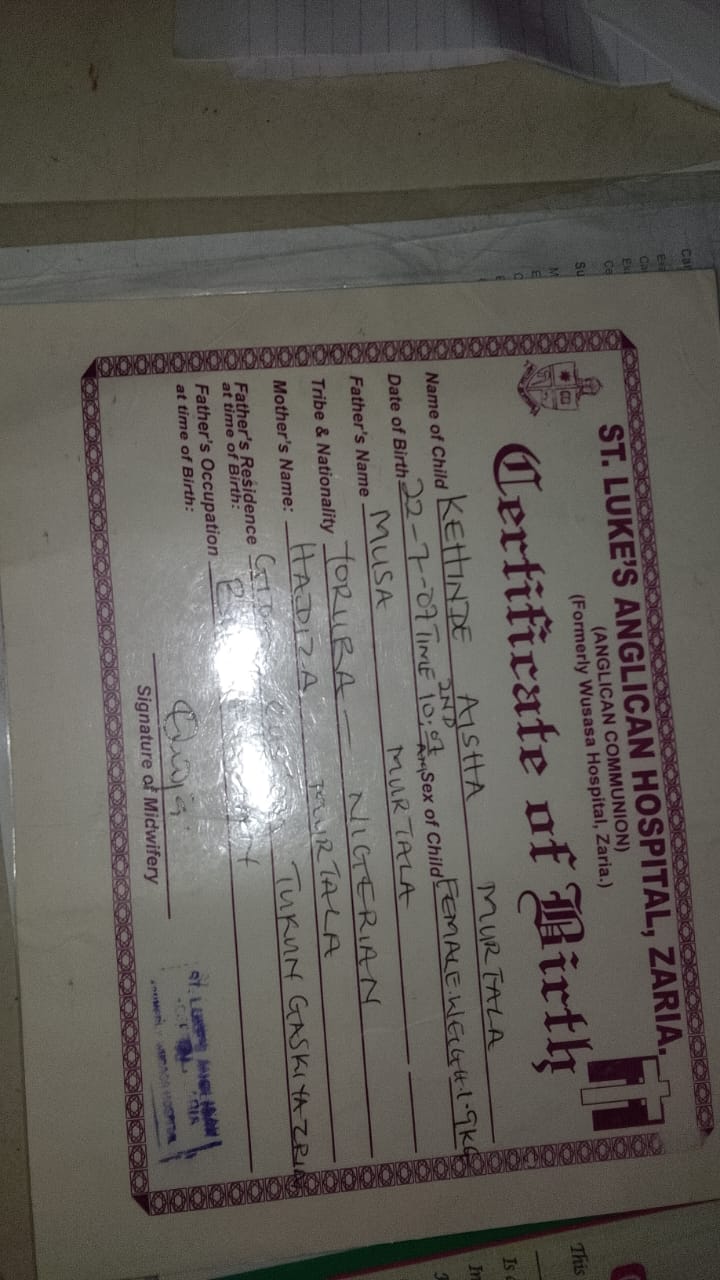 ST. LUKE'S ANGLICAN HOSPITAL, ZARIA.
(ANGLICAN COMMUNION)
(Formerly Wusasa Hospital, Zaria.)
Certificate of Birth
Name of Child KEHINDE AISHA MURTALA
2ND
Date of Birth 22-7-07 TIME 10:07 Am Sex of Child FEMALE. WEIGH 1.9KG
Father's Name MUSA MURTALA
Tribe & Nationality YORUBA - NIGERIAN
Mother's Name: HADIZA MURTALA
Father's Residence
at time of Birth: TUKUN GASKIYA ZRIA
Father's Occupation
at time of Birth:
Signature of Midwifery
This
Is